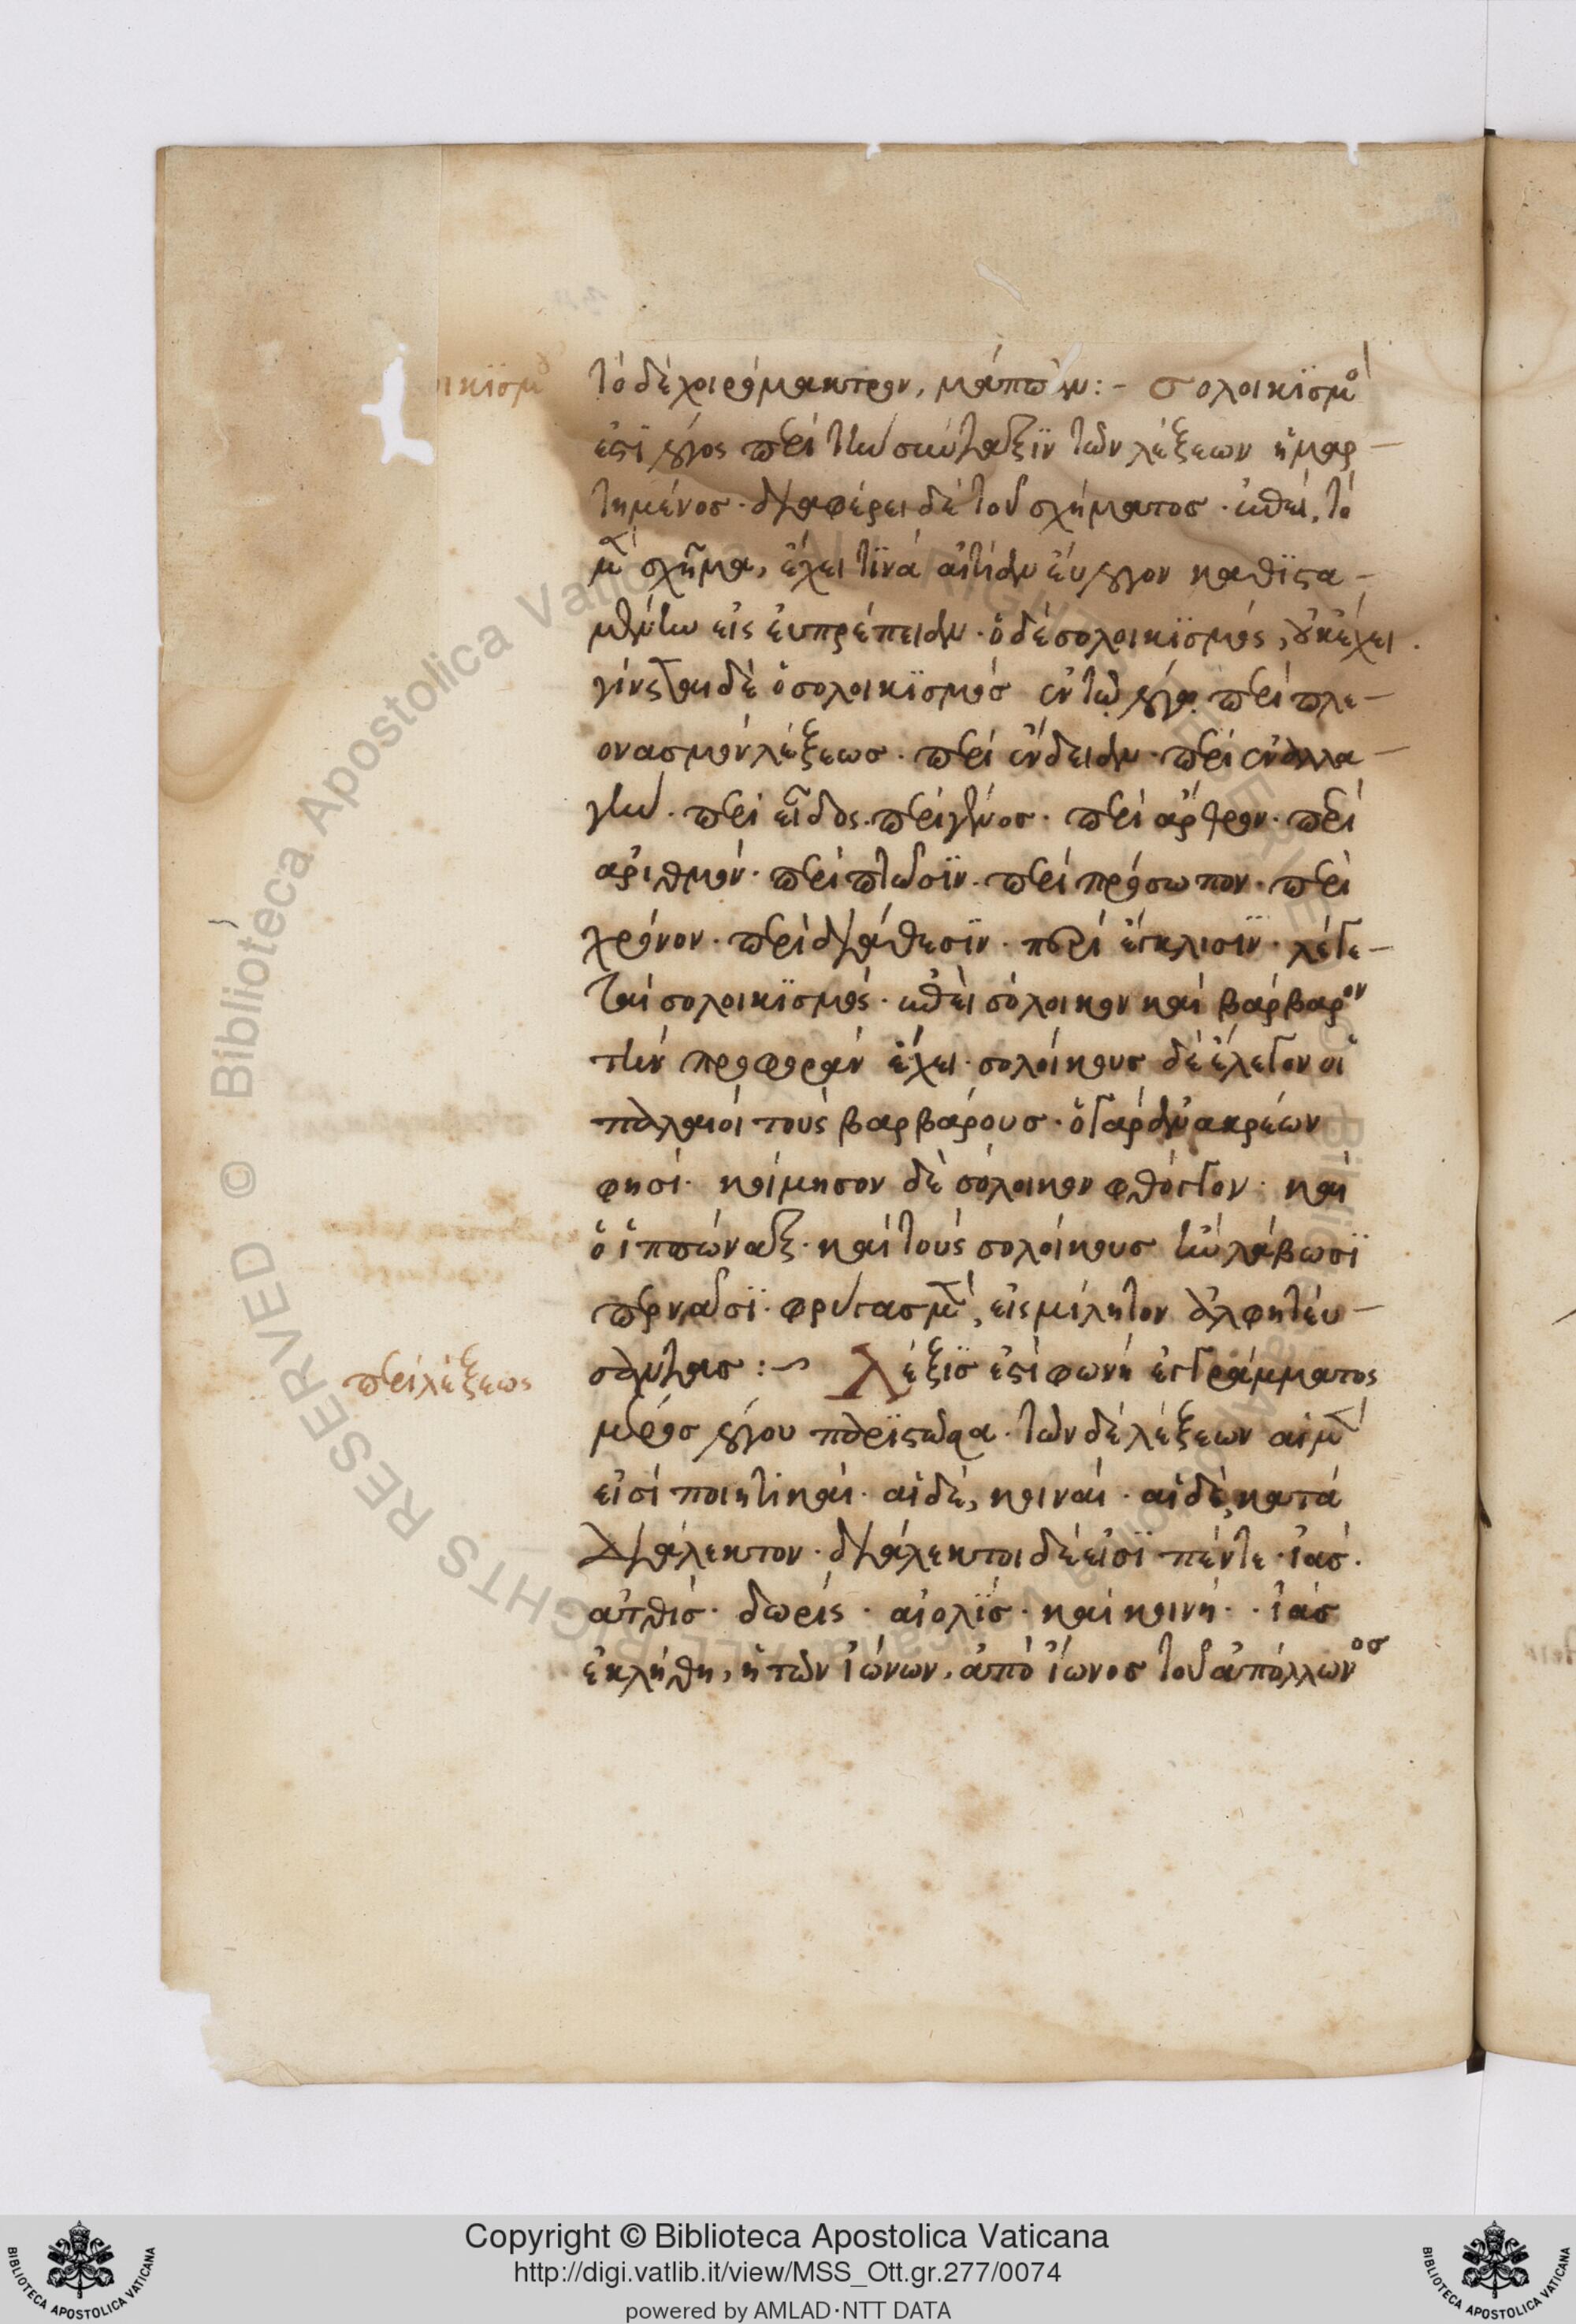 τὸ δὲ χειρόμακτρον, μάππαν:- σολοικϊσμὸ
ἐστὶ λόγος περὶ τὴν σύνταξϊν τῶν λέξεων ἡμαρ-
τημένοσ· διαφέρει δὲ τοῦ σχήματοσ· καθὸ, τὸ
μ σχῆμα, ἔχει τϊνὰ αἰτίαν εὔλογον καθϊστα-
μένην εἰς εὐπρέπειαν· ὁ δὲ σολοικϊσμὸς, οὐκ ἔχει.
γίνεται δὲ ὁ σολοικϊσμὸσ ἐν τῷ λόγῳ περὶ πλε-
ονασμὸν λέξεωσ· περὶ ἔνδειαν· περὶ ἐναλλα-
γὴν· περὶ εἶδος· περὶ γένοσ· περὶ ἄρθρον· περὶ
ἀριθμὸν· περὶ πτῶσϊν· περὶ πρόσωπον· περὶ
χρόνον· περὶ διάθεσϊν· περὶ ἔγκλισϊν· λέγε-
ται σολοικϊσμὸς· σόλοικον καὶ βάρβαρον
τὴν προφορὰν ἔχει· σολοίκουσ δὲ ἔλεγον οἱ
παλαιοὶ τοὺς βαρβάρουσ· ὁ γὰρ ἀνακρέων
φησί· κοίμησον δὲ σόλοικον φθόγγον· καὶ
ὁ ἱππώναξ· καὶ τοὺς σολοίκουσ ἢν λάβωσϊ
περνᾶσϊ· φρύγασ μ, εἰς μίλητον ἀλφητεύ-
σαντασ:~ λέξϊσ ἐστὶ φωνὴ ἐγγράμματος
περὶ λέξεως
μέροσ λόγου παριστῶσα· τῶν δὲ λέξεων αἱ μ
εἰσὶ ποιητικαὶ· αἱ δὲ, κοιναὶ· αἱ δὲ, κατὰ
διάλεκτον· διάλεκτοι δὲ εἰσϊ πέντε· ἰάσ·
ἀτθίσ· δωρίς· αἰολϊσ· καὶ κοινή· ἰάσ
ἐκλήθη, ἡ τῶν ἰώνων, ἀπὸ ἴωνοσ τοῦ ἀπόλλωνοσ
Copyright © Biblioteca Apostolica Vaticana
http://digi.vatlib.it/view/MSS_Ott.gr.277/0074
powered by AMLAD·NTT DATA
BIBLIOTECA APOSTOLICA VATICANA
BIBLIOTECA APOSTOLICA VATICANA